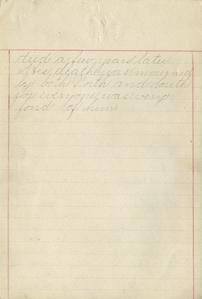 died a few years later
after death he was mourned
by both North and South
for everyone was very
fond of him